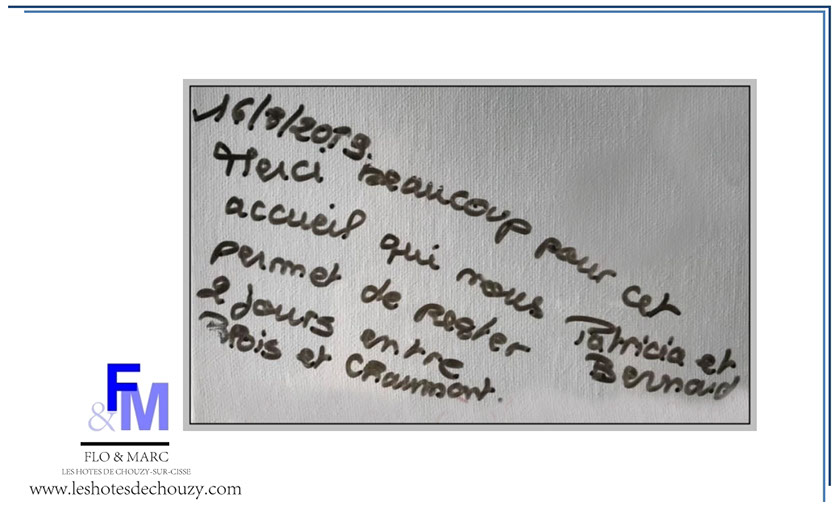 16/8/2019.
Merci beaucoup pour cet
accueil qui nous
permet de rester
2 jours entre
Blois et Chaumont.
Patricia et
Bernard
F
&M
FLO & MARC
LES HOTES DE CHOUZY-SUR-CISSE
www.leshotesdechouzy.com